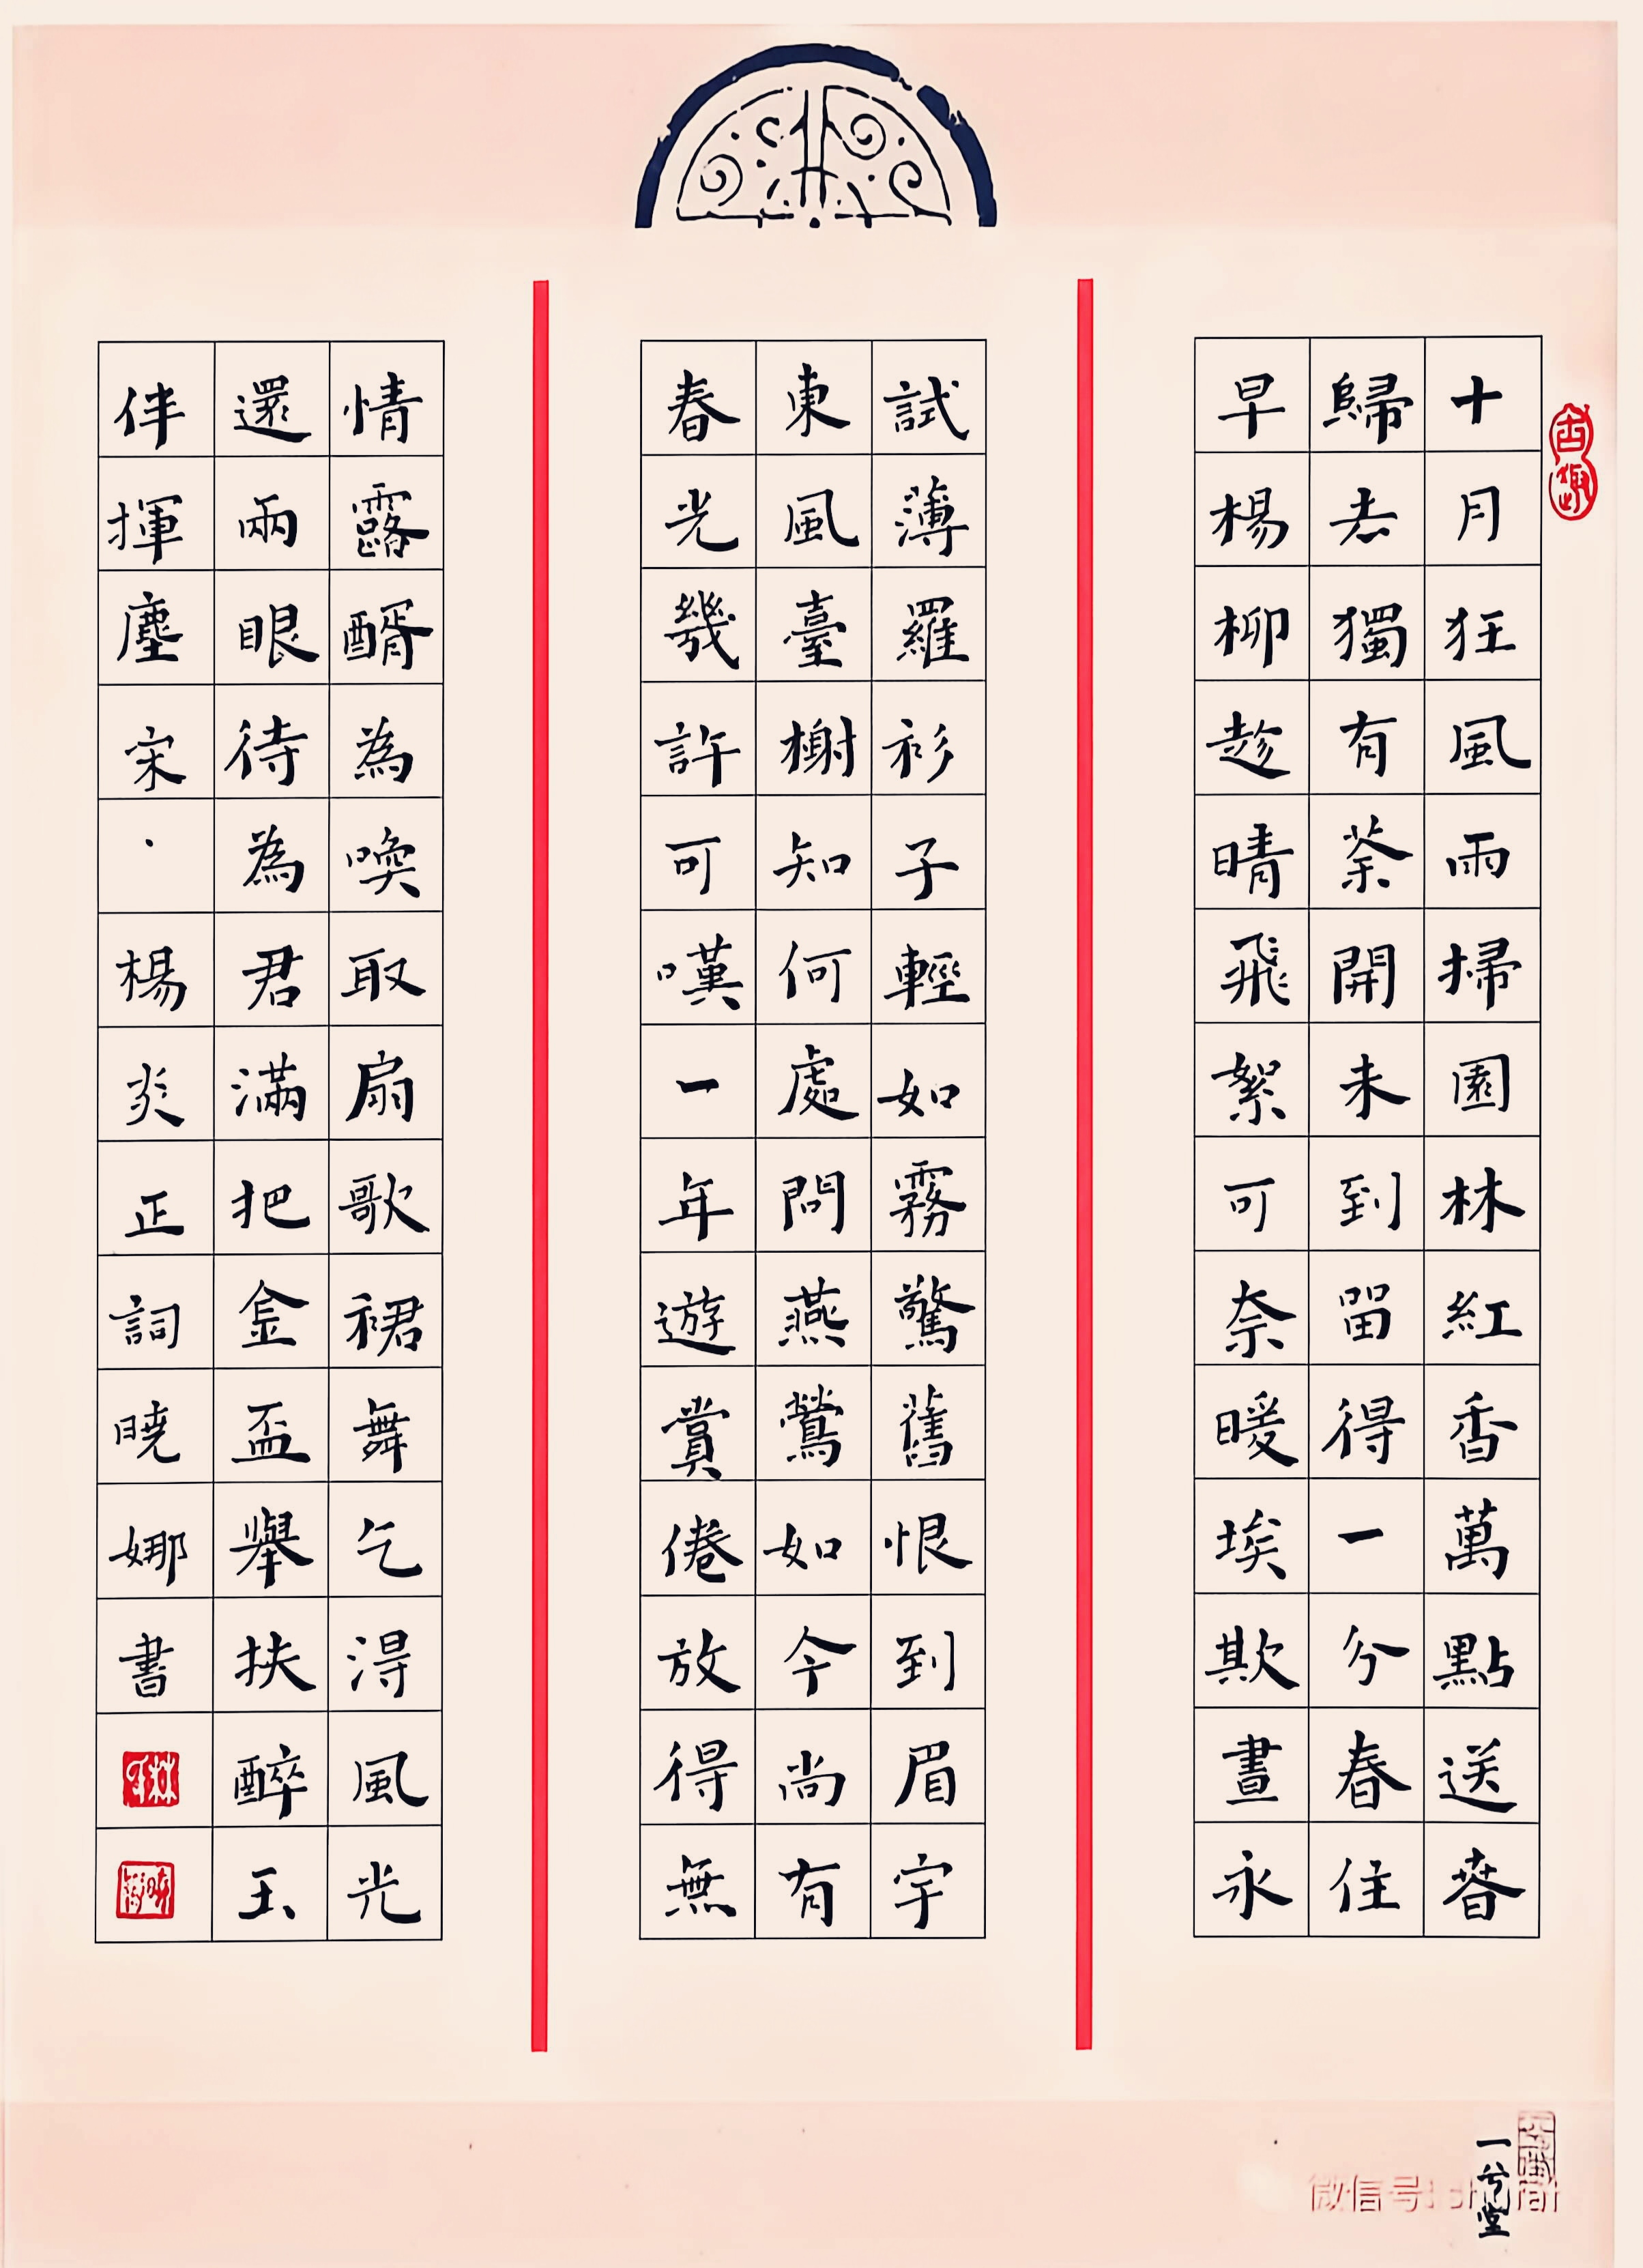 十月狂風雨掃園林紅香萬點送春
歸去獨有荼開未到留得一分春住
早楊柳趁晴飛絮可奈暖埃欺晝永
試薄羅衫子輕如霧驚舊恨到眉宇
東風臺榭知何處問燕鶯如今尚有
春光幾許可嘆一年遊賞倦放得無
情露醑為喚取扇歌裙舞乞得風光
還兩眼待為君滿把金盃舉扶醉玉
伴揮塵宋·楊炎正詞曉娜書
一兮堂
微信号